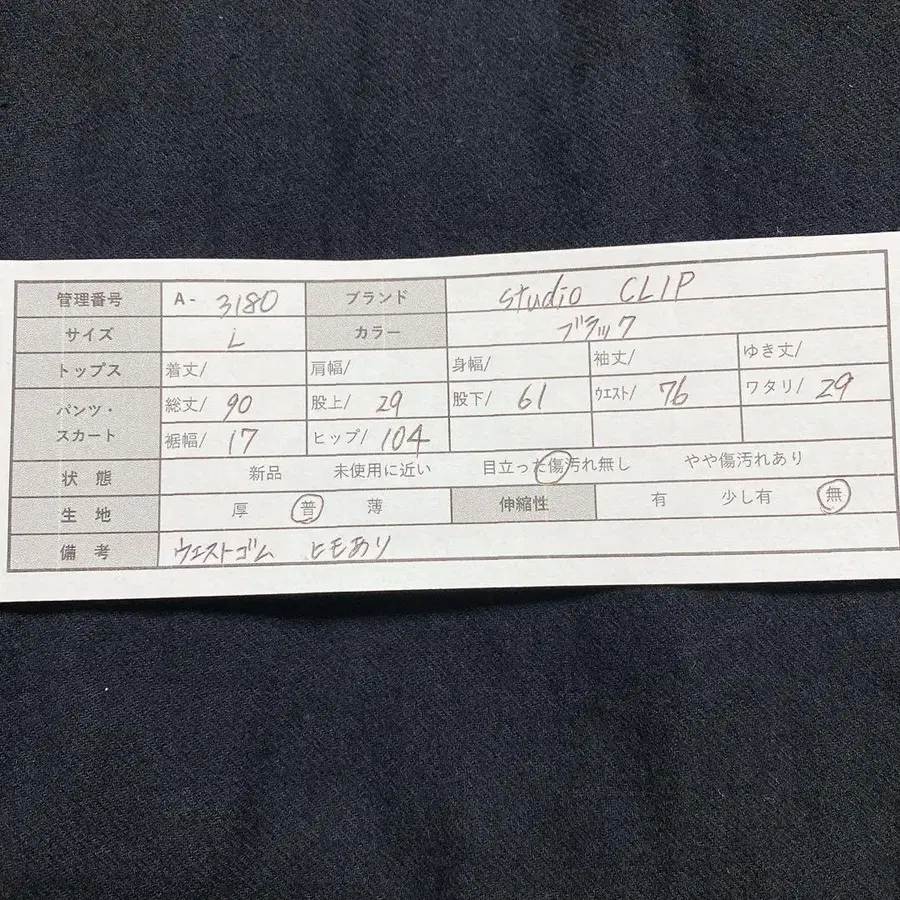 管理番号 A- 3180 ブランド studio CLIP
サイズ L カラー ブラック
トップス 着丈/ 肩幅/ 身幅/ 袖丈/ ゆき丈/
パンツ・スカート 総丈/ 90 股上/ 29 股下/ 61 ウエスト/ 76 ワタリ/ 29
裾幅/ 17 ヒップ/ 104
状態 新品 未使用に近い 目立った傷汚れ無し やや傷汚れあり
生地 厚 普 薄 伸縮性 有 少し有 無
備考 ウエストゴム ヒモあり